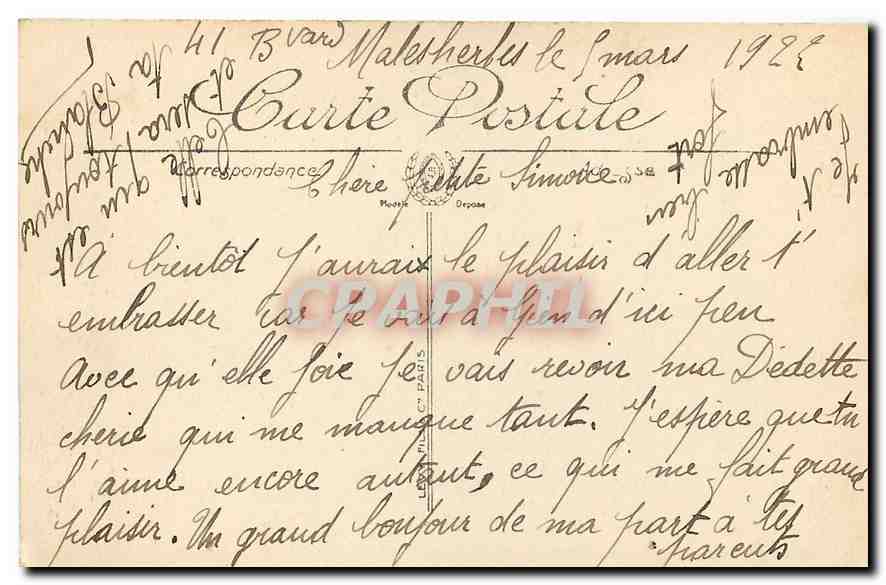 41 Bvard Malesherbes le 5 mars 1922
Carte Postale
Correspondance
Adresse
Modèle Déposé
Chère petite Simone
A bientôt j'aurais le plaisir d'aller t'
embrasser car je vais à Gien d'ici peu
Avec qu'elle joie je vais revoir ma Dédette
cherie qui me manque tant. J'espère que tu
l'aime encore autant, ce qui me fait grand
plaisir. Un grand bonjour de ma part à tes
parents
Je t'
embrasse bien
fort
Celle qui est
et sera toujours
ta Blanche
LEVY FILS & Cie PARIS
CPAPHIL